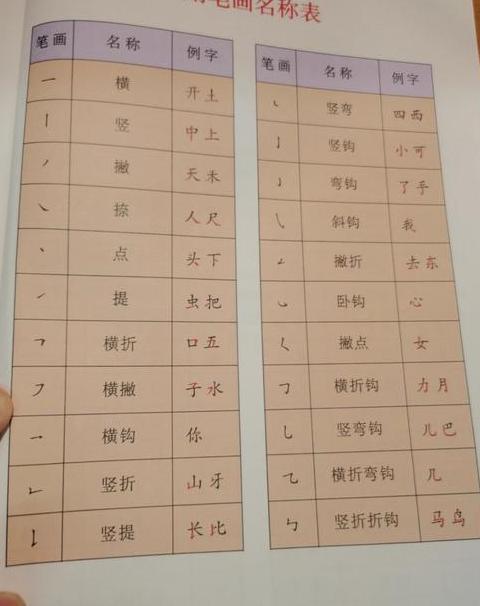 笔画名称表
笔画 名称 例字
㇐ 横 开土
㇑ 竖 中上
㇒ 撇 天未
㇏ 捺 人尺
㇔ 点 头下
㇀ 提 虫把
㇕ 横折 口五
㇇ 横撇 子水
㇖ 横钩 你
㇗ 竖折 山牙
㇙ 竖提 长比
笔画 名称 例字
㇄ 竖弯 四西
㇚ 竖钩 小可
㇁ 弯钩 了乎
㇂ 斜钩 我
㇜ 撇折 去东
㇃ 卧钩 心
㇛ 撇点 女
㇆ 横折钩 力月
㇟ 竖弯钩 儿巴
㇈ 横折弯钩 几
㇉ 竖折折钩 马鸟